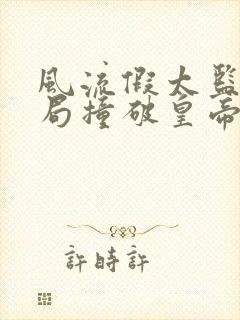 風流假太監
局撞破皇帝
許時許